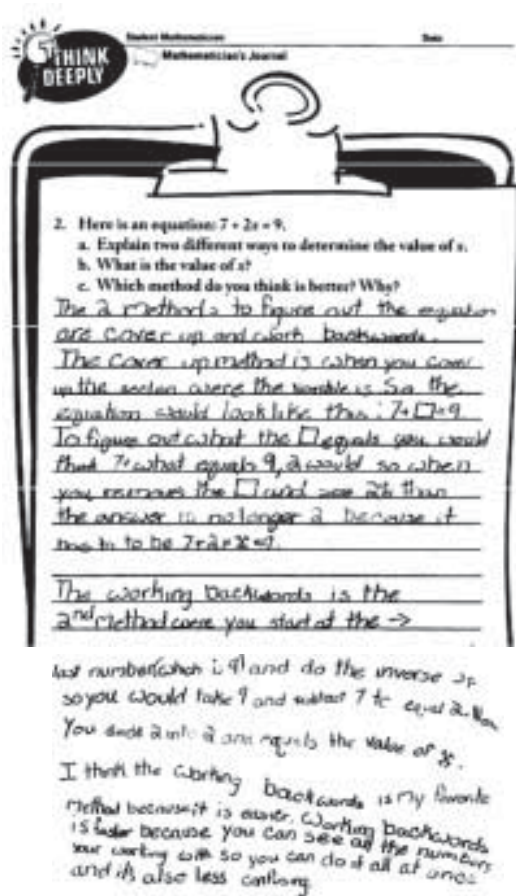 THINK
DEEPLY
Student Mathematician: Date
Mathematician's Journal
2. Here is an equation: 7 + 2x = 9.
a. Explain two different ways to determine the value of x.
b. What is the value of x?
c. Which method do you think is better? Why?
The 2 methods to figure out the equation
are cover up and work backwards.
The cover up method is when you cover
up the section were the varible is so the
equation would look like this: 7+□=9
To figure out what the □ equals you would
think 7+what equals 9, 2 would so when
you remove the □ and see 2x than
the answer is no longer 2 because it
has to be
The working backwords is the
2nd method were you start at the →
last number(which is 9) and do the inverse
so you would take 9 and subtract 7 to equal 2. Now
You 2 into 2 and equals the value of x.
I think the working backwords is my favorite
method because it is easier. Working backwords
is faster because you can see all the numbers
your working with so you can do it all at once
and it's also less confusing